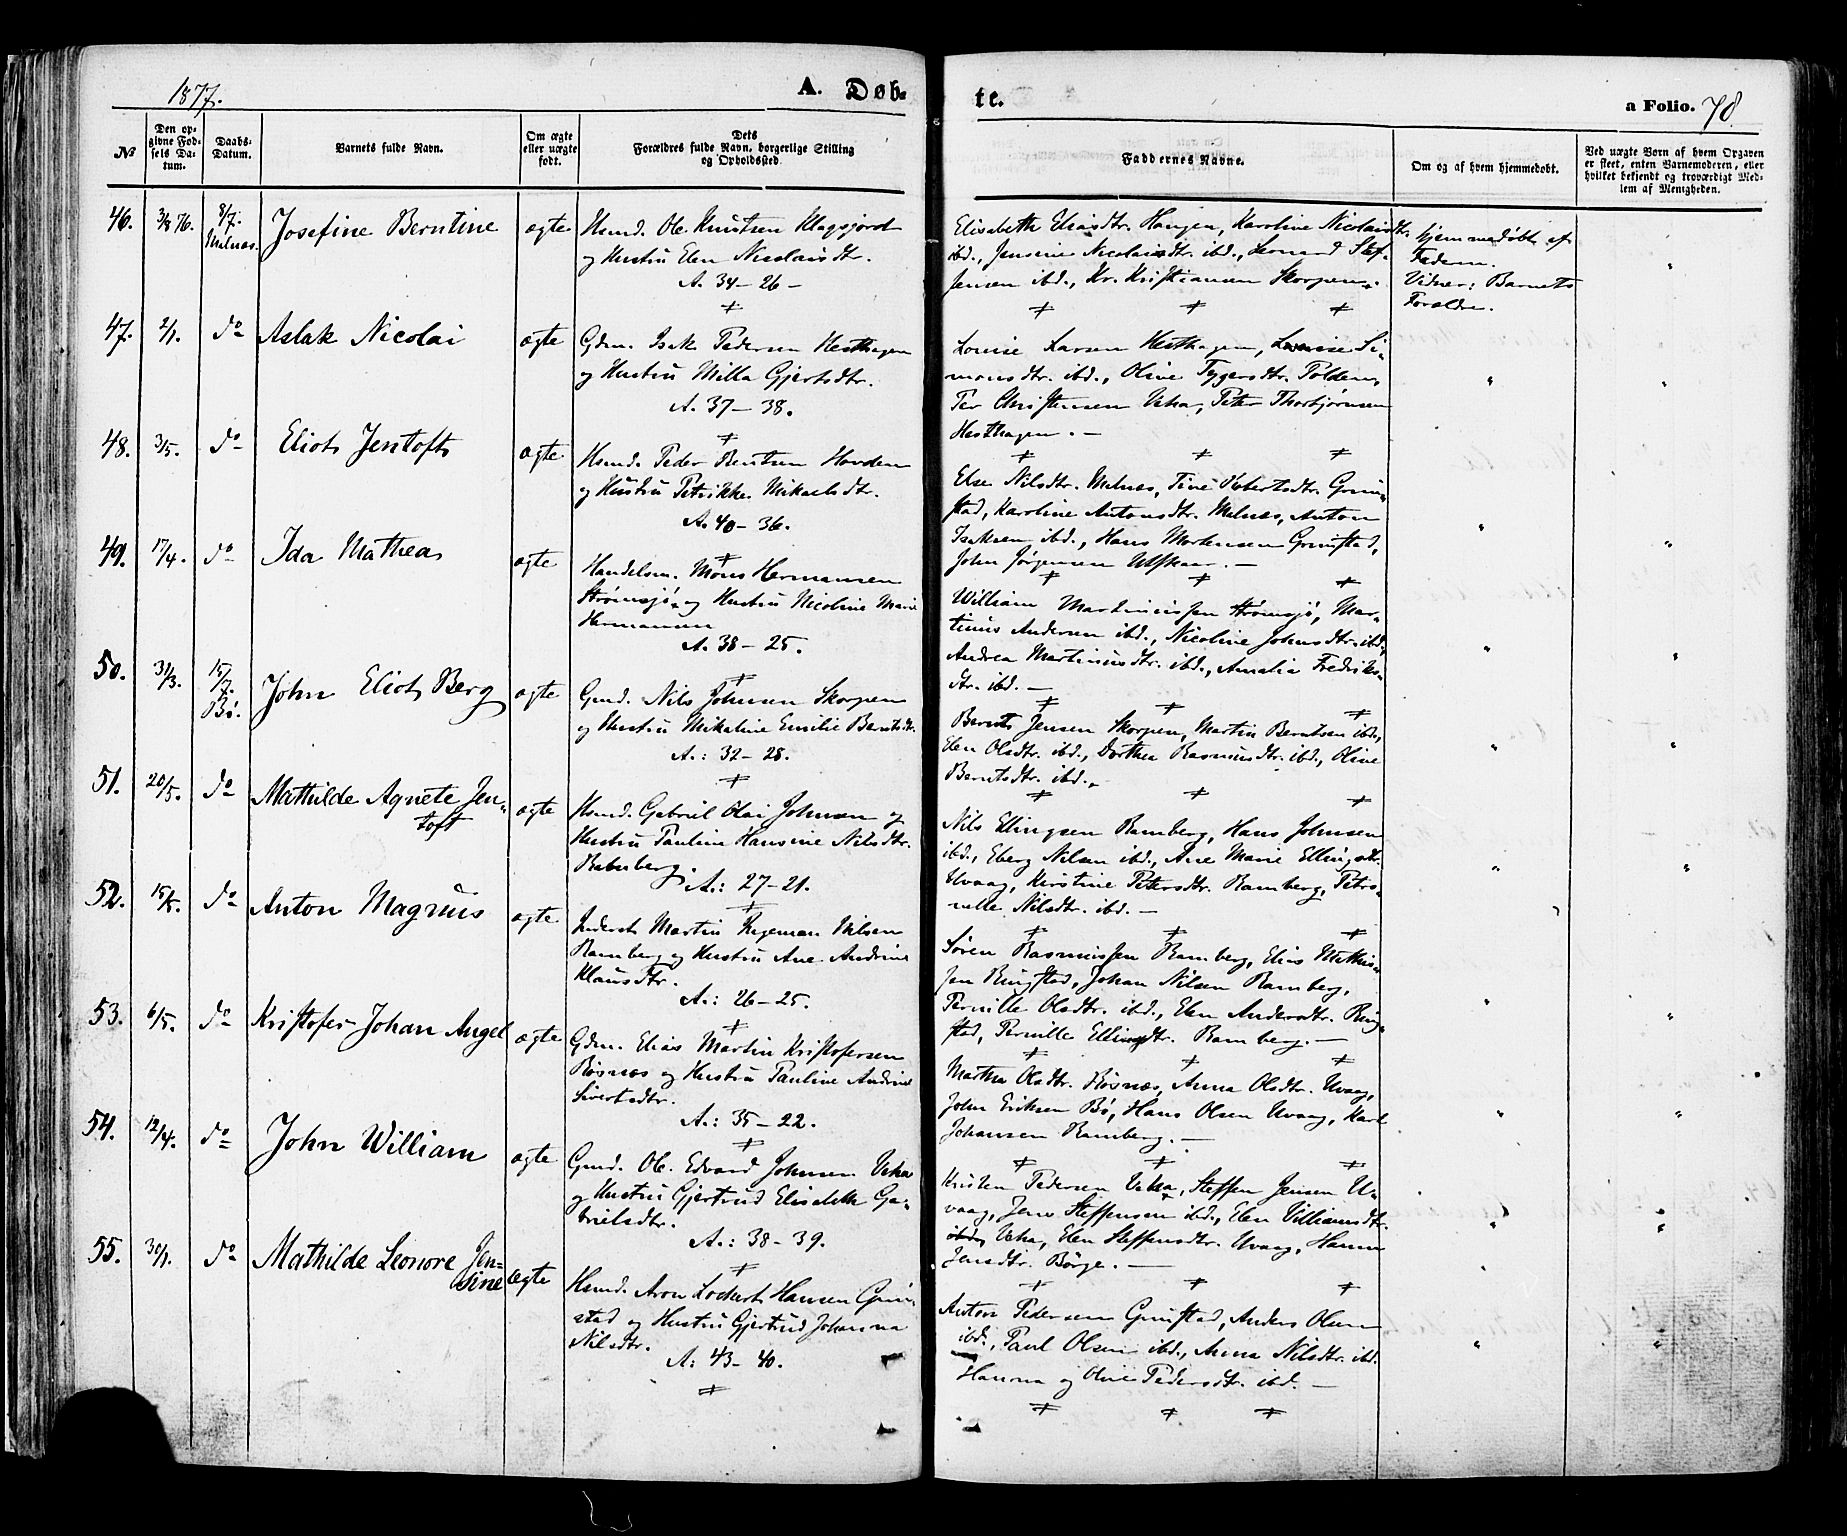 1877.
A. Døb-
te.
a Folio. 78.
№
Den op-
givne Fød-
sels Da-
tum.
Daabs-
Datum.
Barnets fulde Navn.
Om ægte
eller uægte
født.
Dets
Forældres fulde Navn, borgerlige Stilling
og Opholdssted.
Faddernes Navne.
Om og af hvem hjemmedøbt.
Ved uægte Børn af hvem Opgaven
er skeet, enten Barnemoderen, eller
hvilket bekjendt og troværdigt Med-
lem af Menigheden.
46. 3/8 76. 8/7. Melnæs. Josefine Berntine ægte
Hsmd. Ole Knutsen Klagsjord
og Hustru Elen Nicolaisdtr.
A. 34-26-
Elisabeth Eliasdtr. Haugen, Karoline Nicolaisdtr.
ibd., Jensine Nicolaisdtr. ibd., Leonard Stef-
fensen ibd., Kr. Kristiansen Skorpen.
Hjemmedøbt af
Faderen.
Vidner: Barnets
Forældre.
47. 2/1. do Aslak Nicolai ægte
Gdm. Isak Pedersen Hesthagen
og Hustru Milla Gjertsdtr.
A. 37-38.
Louise Larsen Hesthagen, Lovise Si-
monsdtr. ibd., Oline Tygersdtr. Polden,
Per Christensen Veha, Peter Thorbjørnsen
Hesthagen. -
48. 3/5. do Eliot Jentoft ægte
Hsmd. Peder Bentsen Hovden
og Hustru Petrikke Mikaelsdtr.
A. 40-36.
Else Nilsdtr. Melnæs, Tine Robertsdtr. Grim-
stad, Karoline Antonsdtr. Melnæs, Anton
Isaksen ibd., Hans Mortensen Grimstad,
John Jørgensen Ulfskaar. -
49. 17/4. do Ida Mathea ægte
Handelsm. Møns Hermansen
Strømsjø, og Hustru Nicoline Marie
Hermansen
A. 38-25.
William Martinussen Strømsjø, Mar-
tinus Andersen ibd., Nicoline Johnsdtr. ibd.,
Andrea Martinusdtr. ibd., Amalia Fredriks-
dtr. ibd. -
50. 31/3. 15/7. Bø. John Eliot Berg ægte
Gmd. Nils Johnsen Skorpen
og Hustru Mikaline Emilie Berntsdtr.
A.: 32-28.
Bernt Jensen Skorpen, Martin Berntsen ibd.,
Elen Olsdtr. ibd., Dorthea Rasmusdtr. ibd., Oline
Berntsdtr. ibd.
51. 20/5. do Mathilde Agnete Jen-
toft ægte
Hsmd. Gabriel Olai Johnsen og
Hustru Pauline Hansine Nilsdtr.
Ramberg.
A.: 27-21.
Nils Ellingsen Ramberg, Hans Johnsen
ibd., Eberg Nilsen ibd., Ane Marie Ellingsdtr.
Uvaag, Kirstine Petersdtr. Ramberg, Petro-
nelle Nilsdtr. ibd. -
52. 15/5. do Anton Magnus ægte
Inderst Martin Nilsen
Ramberg og Hustru Ane Andrine
Klausdtr.
A.: 26-25.
Søren Rasmussen Ramberg, Elias Mathis-
sen Ringstad, Johan Nilsen Ramberg,
Pernille Olsdtr. ibd., Elen Andersdtr. Ring-
stad, Pernille Ellingsdtr. Ramberg. -
53. 6/5. do Kristofer Johan Angel ægte
Gdm. Elias Martin Kristofersen
Røsnæs og Hustru Pauline Andrine
Sivertsdtr.
A.: 35-22.
Martha Olsdtr. Røsnæs, Anna Olsdtr. Uvaag,
John Eriksen Bø, Hans Olsen Uvaag, Karl
Johansen Ramberg. -
54. 12/4. do John William ægte
Gmd. Ole Edvard Johnsen Veha
og Hustru Gjertrud Elisabeth Ga-
brielsdtr.
A.: 38-39.
Kristen Pedersen Veha, Steffen Jensen U-
vaag, Jens Steffensen ibd., Elen Villiamsdtr.
Veha, Elen Steffensdtr. Uvaag, Hanna
Jensdtr. Børge. -
55. 30/1. do Mathilde Leonore Jen-
sine ægte
Hsmd. Aron Lockert Hansen Grim-
stad og Hustru Gjertrud Johanna
Nilsdtr.
A: 43-40.
Anton Pedersen Grimstad, Anders Olsen
ibd., Paul Olsen ibd., Anna Nilsdtr. ibd.
Hanna og Oline Pedersdtr. ibd. -